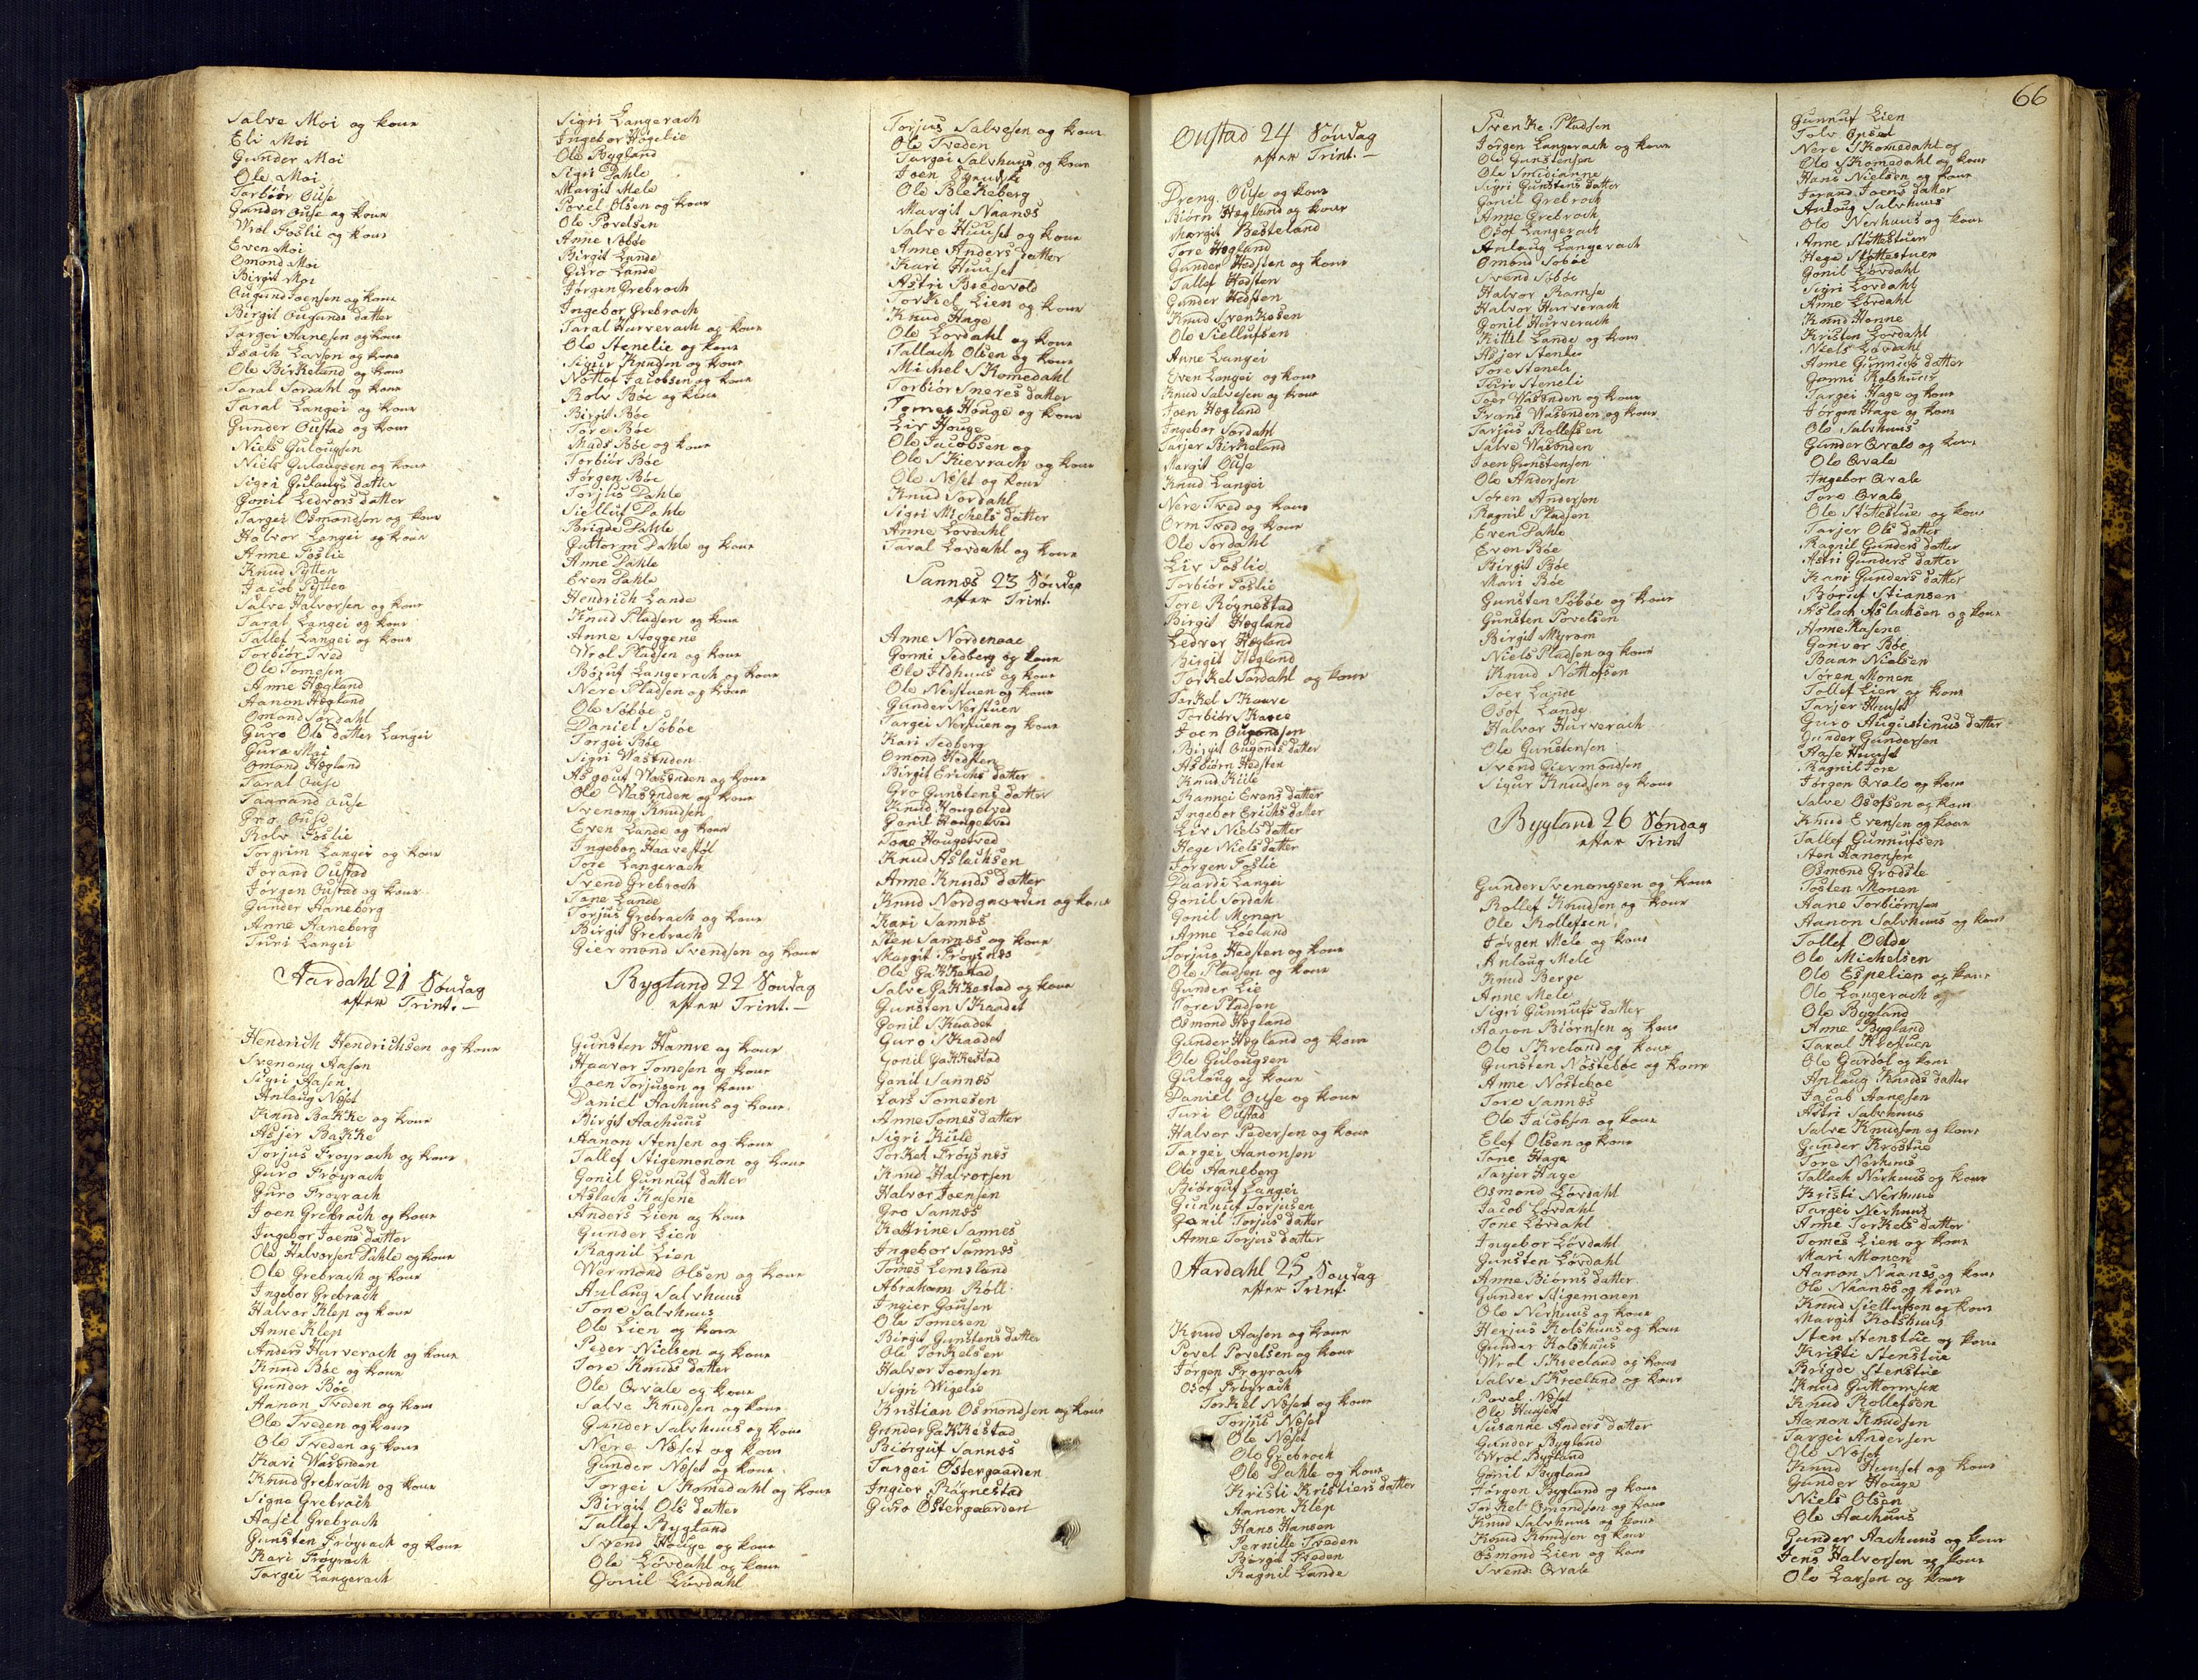 Salve Moi og kone
Eli Moi
Gunder Moi
Ole Moi
Torbiör Ouse
Gunder Ouse og kone
Wrol Foslie og kone
Even Moi
Omond Moi
Birgit Moi
Ougund Joensen og kone
Birgit Ougunds datter
Targei Aanesen og kone
Isach Larsen og kone
Ole Birkeland og kone
Taral Sordahl og kone
Taral Langei og kone
Gunder Oustad og kone
Niels Gulougsen
Niels Gulaugsen og kone
Sigri Gulaugs datter
Gonil Ledvors datter
Targei Osmondsen og kone
Halvor Langei og kone
Anne Foslie
Knud Pytten
Jacob Pytten
Salve Halvorsen og kone
Taral Langei og kone
Tallef Langei og kone
Torbiör Tved
Ole Tomesen
Anne Hegland
Aanon Hegland
Omond Sordahl
Guro Ols datter Langei
Guro Moi
Omond Hegland
Taral Ouse
Taarand Ouse
Gro Ouse
Rolv Foslie
Torgrim Langei og kone
Jorand Oustad
Jörgen Oustad og kone
Gunder Aaneberg
Anne Aaneberg
Turi Langei
Aardahl 21 Söndag
efter Trint.
Hendrich Hendrichsen og kone
Svenong Aasen
Sigri Aasen
Anlaug Neset
Knud Bakke og kone
Asjer Bakke
Torjus Fröyrach og kone
Guro Fröyrach
Guro Fröyrach
Joen Grebrach og kone
Ingebor Joens datter
Ole Halvorsen Dahle og kone
Ole Grebrach og kone
Ingebor Grebrach
Halvor Klep og kone
Anne Klep
Anders Hurverach og kone
Knud Böe og kone
Gunder Böe
Aanon Tveden og kone
Ole Tveden og kone
Ole Tveden og kone
Kari Wasenden
Knud Grebrach og kone
Signe Grebrach
Aasil Grebrach
Gunsten Fröyrach og kone
Kari Fröyrach
Targei Langerach
Sigri Langerach
Ingebor Högelie
Ole Bygland
Sigri Dahle
Margit Mele
Povel Olsen og kone
Ole Povelsen
Anne Söböe
Birgit Lande
Guro Lande
Jörgen Grebroch
Ingebor Grebroch
Taral Hurverach og kone
Ole Stenelie og kone
Sigur Knudsen og kone
Nottof Jacobsen og kone
Rolv Böe og kone
Birgit Böe
Tore Böe
Mads Böe og kone
Torbiör Böe
Jörgen Böe
Torjus Dahle
Sielluf Dahle
Brigde Dahle
Guttorm Dahle og kone
Anne Dahle
Even Dahle
Hendrich Lande
Knud Pladsen og kone
Anne Stoggene
Wrol Pladsen og kone
Böruf Langerach og kone
Nere Pladsen og kone
Ole Söböe
Daniel Söböe
Torgei Böe
Sigri Wasenden
Asgout Wasenden og kone
Ole Wasenden og kone
Svenong Knudsen
Even Lande og kone
Ingebor Haavestöl
Tore Langerach
Svend Grebroch
Tone Lande
Torjus Grebrach og kone
Birgit Grebrach
Giermond Svendsen og kone
Bygland 22 Söndag
efter Trint.
Gunsten Hamre og kone
Haavor Tomesen og kone
Joen Torjusen og kone
Daniel Aachuus og kone
Birgit Aachuus
Aanon Stensen og kone
Tallef Stigemonen og kone
Gonil Gunnuf datter
Aslach Kasene
Anders Lien og kone
Gunder Lien
Ragnil Lien
Wermond Olsen og kone
Anlaug Salvhuus
Tone Salvhuus
Ole Lien og kone
Peder Nielsen og kone
Tore Knuds datter
Ole Qvale og kone
Salve Knudsen og kone
Gunder Salvhuus og kone
Nere Neset og kone
Gunder Neset og kone
Torgei Skomedahl og kone
Birgit Ols datter
Tallef Bygland
Svend Houge og kone
Ole Lövdahl og kone
Gonil Lövdahl
Torjus Salvesen og kone
Ole Tveden
Targei Salvhuus og kone
Joen
Ole Blekeberg
Margit Naanes
Salve Huuset og kone
Anne Anders datter
Kari Huuset
Astri Bredevold
Torkel Lien og kone
Knud Hage
Ole Lövdahl og kone
Tallach Olsen og kone
Michel Skomedahl
Torbiör Sneres datter
Tomes Houge og kone
Liv Houge
Ole Jacobsen og
Ole Skievrach og kone
Ole Neset og kone
Knud Sordahl
Sigri Michels datter
Anne Lovdahl
Taral Lovdahl og kone
Sannes 23 Söndag
efter Trint.
Anne Nordenaae
Gonni Sedberg og kone
Ole Ildhuus og kone
Ole Nerstuen og kone
Gunder Nerstuen
Targei Nerstuen og kone
Kari Sedberg
Omond Hedsten
Birgit Erichs datter
Gro Gunstens datter
Knud Hougetved
Gonil Hougetved
Tone Hougetved
Knud Aslachsen
Anne Knuds datter
Knud Nordgaarden og kone
Kari Sannes
Sten Sannes og kone
Margit Fröysnes
Ole Gakkestad
Salve Gakkestad og kone
Gunsten Skaadet
Gonil Skaadet
Guro Skaadet
Gonil Gakkestad
Gonil Sannes
Lars Tomesen
Anne Tomes datter
Sigri Kiile
Torkel Fröysnes
Knud Halvorsen
Halvor Joensen
Gro Sannes
Kattrine Sannes
Ingebor Sannes
Tomes Lemsland
Abraham Röll
Ingier Gousen
Ole Tomesen
Birgit Gunstens datter
Ole Torkelsen
Halvor Joensen
Sigri Wigelie
Kristian Osmondsen og kone
Gunder Gakkestad
Biörguf Sannes
Targei Östergaarden
Ingier Rögnestad
Guro Östergaarden
66
Oustad 24 Söndag
efter Trint.
Dreng Ouse og kone
Biörn Heglund og kone
Margit Besteland
Tore Hegland
Gunder Hedsten og kone
Tallef Hedsten
Gunder Hedsten
Knud Svenkesen
Ole Siellufsen
Anne Langei
Even Langei og kone
Knud Salvesen og kone
Joen Hegland
Ingebor Sordahl
Tarjer Birkeland
Margit Ouse
Knud Langei
Nere Tved og kone
Orm Tved og kone
Ole Sordahl
Liv Foslie
Torbiör Foslie
Tore Rögnestad
Birgit Hegland
Ledvor Hegland
Birgit Hegland
Torkel Sordahl og kone
Torkel Skaave
Torbiör Skaave
Joen Ougondsen
Birgit Ougonds datter
Asbiörn Hedsten
Knud Kiile
Rannei Evens datter
Ingebor Erichs datter
Liv Niels datter
Hege Niels datter
Jörgen Foslie
Daardi Langei
Gonil Sordah
Gonil Monen
Anne Löeland
Torjus Hedsten og kone
Ole Pladsen og kone
Gunder Lie
Tore Pladsen
Osmond Hegland
Gunder Hegland og kone
Ole Gulougsen
Guloug og kone
Daniel Ouse og kone
Turi Oustad
Halvor Pedersen og kone
Targei Aanonsen
Ole Aaneberg
Biörguf Langei
Gunnuf Torjusen
Gonil Torjus datter
Anne Torjus datter
Aardahl 25 Söndag
efter Trint.
Knud Aasen og kone
Povel Povelsen og kone
Jörgen Fröyrach
Osof Fröyrach
Torkel Neset og kone
Torjus Neset
Ole Neset
Ole Grebroch
Ole Dahle og kone
Kristi Kristiers datter
Aanon Klep
Hans Hansen
Pernille Tveden
Börgit Tveden
Ragnil Lande
Svenke Pladsen
Jörgen Langerach og kone
Ole Gunstensen
Ole Smidianne
Sigri Gunstens datter
Gonil Grebroch
Anne Grebroch
Osof Langerach
Anlaug Langerach
Omond Söböe
Svend Söböe
Halvor Ramse
Halvor Hurverach
Gonil Hurverach
Kittil Lande og kone
Asjer Stenlie
Tore Steneli
Turi Steneli
Toer Wasenden og kone
Frans Wasenden og kone
Tarjus Rollefsen
Salve Wasenden
Joen Gunstensen
Ole Andersen
Sören Andersen
Ragnil Pladsen
Even Dahle
Even Böe
Birgit Böe
Mari Böe
Gunsten Söböe og kone
Gunsten Povelsen
Birgit Myrom
Niels Pladsen og kone
Knud Nottofsen
Toer Lande
Osof Lande
Halvor Hurverach
Ole Gunstensen
Svend Giermondsen
Sigur Knudsen og kone
Bygland 26 Söndag
efter Trint
Gunder Svenongsen og kone
Rollef Knudsen og kone
Ole Rollefsen
Jörgen Mele og kone
Anlaug Mele
Knud Berge
Anne Mele
Sigri Gunnufs datter
Aanon Biörnsen og kone
Ole Skreland og kone
Gunsten Nösteböe og kone
Anne Nösteböe
Tore Sannes
Ole Jacobsen og kone
Elef Olsen og kone
Tone Hage
Tarjer Hage
Osmond Lövdahl
Jacob Lövdahl
Tone Lövdahl
Ingebor Lövdahl
Gunsten Lövdahl
Anne Biörns datter
Gunder Stigemonen
Ole Nerhuus og kone
Herjus Kolshuus og kone
Gunder Kolshuus
Wrol Skreeland og kone
Salve Skreeland og kone
Povel Neset
Ole Huuset
Susanne Anders datter
Gunder Bygland
Wrol Bygland
Gonil Bygland
Jörgen Bygland og kone
Torkel Omondsen og kone
Knud Salvhuus og kone
Knud Knudsen og kone
Osmond Lien og kone
Svend Qvale
Gunnuf Lien
Tolv
Nere Skomedahl og
Ole Skomedahl og kone
Hans Nielsen og kone
Jorand Joens datter
Anloug Salvhuus
Ole Nerhuus og kone
Anne Stöttestuen
Hege Stöttestuen
Gonil Lövdahl
Sigri Lovdahl
Anne Lövdahl
Knud Henne
Kristen Lovdahl
Niels Lövdahl
Anne Gunnufs datter
Gonni Kolshuus
Targei Hage og kone
Jörgen Hage og kone
Ole Salvhuus
Gunder Qvale og kone
Ole Qvale
Ingebor Qvale
Tore Qvale
Ole Stöttestue og kone
Tarjer Ols datter
Ragnil Gunders datter
Astri Gunders datter
Kari Gunders datter
Böruf Stiansen
Aslach Aslachsen og kone
Anne Kasene
Gunvor Böe
Baar Nielsen
Sören Monen
Tollef Lien og kone
Tarjer Huuset
Guro Augustinus datter
Gunder Gundersen
Aase Huuset
Ragnil Fore
Jörgen Qvale og kone
Salve Osofsen og kone
Knud Evensen og kone
Tallef Gunnufsen
Sten Aanonsen
Osmond Grodste
Tosten Monen
Aane Torbiörnsen
Aanon Salvhuus og kone
Tollef Odde
Ole Michelsen
Ole Espelien og kone
Ole Langerach og
Ole Bygland
Anne Bygland
Taral Krostuen
Ole Gurdöl og kone
Anlaug Knuds datter
Jacob Aanesen
Astri Salvhuus
Salve Knudsen og kone
Gunder Krostue
Tore Nerhuus
Tallach Nerhuus og kone
Kristi Nerhuus
Targei Nerhuus
Anne Torkels datter
Tomes Lien og kone
Mari Monen
Aanon Naanes og kone
Ole Naanes og kone
Knud Siellufsen og kone
Margit Kolshuus
Sten Stenstue og kone
Kristi Stenstue
Brigde Stenstue
Knud Guttormsen
Knud Rollefsen
Aanon Knudsen
Targei Andersen
Ole Neset
Knud Huuset og kone
Gunder Houge
Niels Olsen
Ole Aachuus
Gunder Aachuus og kone
Jens Halvorsen og kone
Ole Larsen og kone